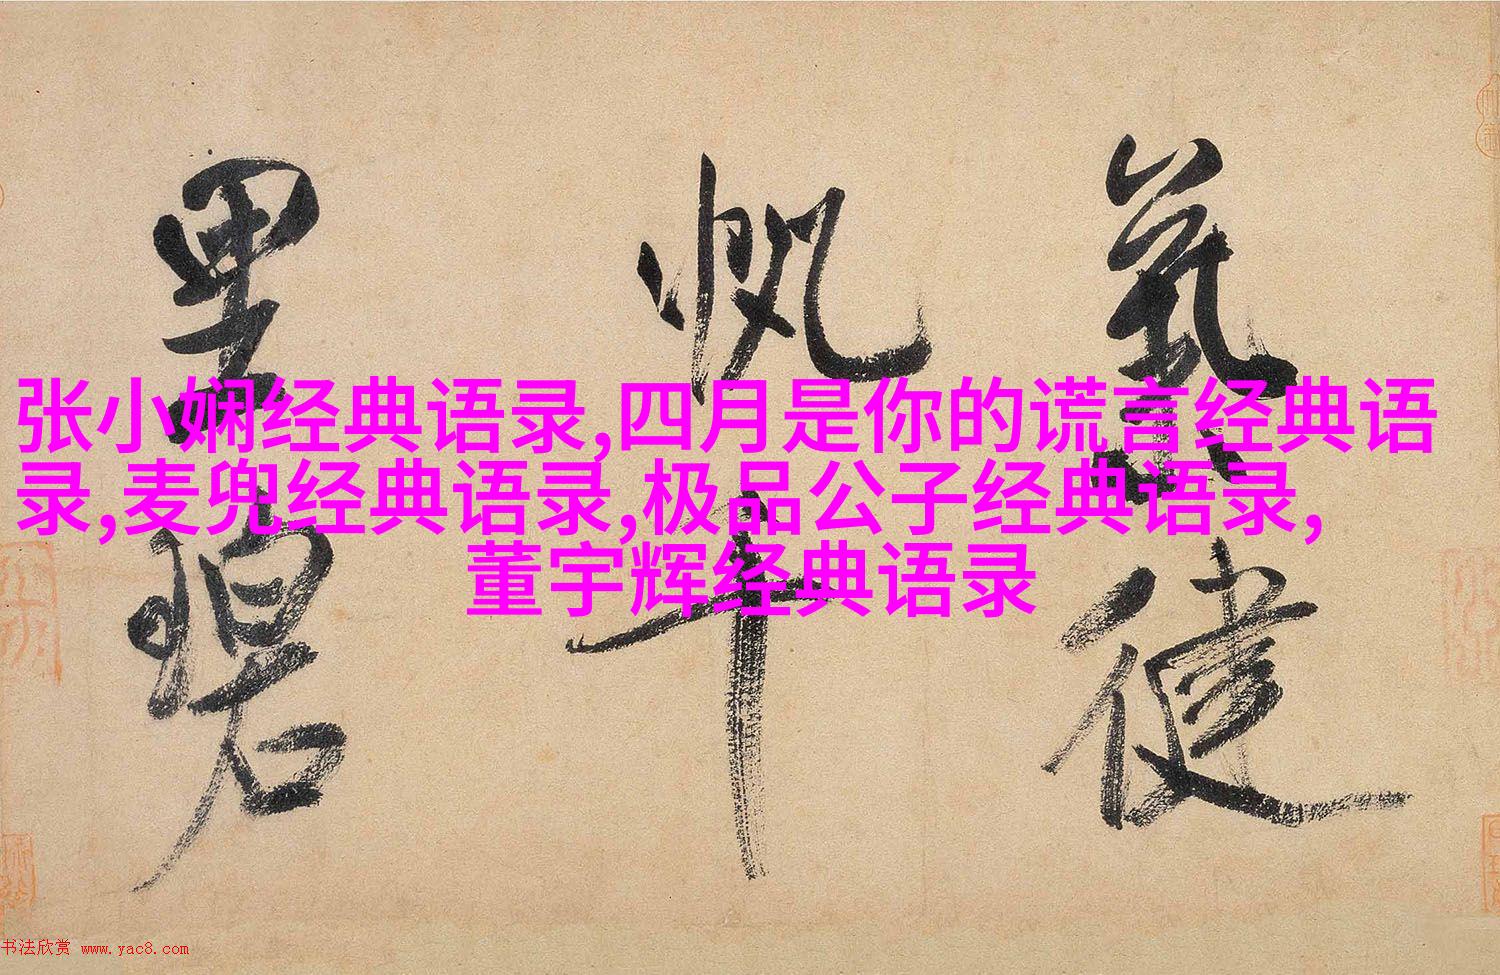 張小娴经典语录,四月是你的谎言经典语
录,麦兜经典语录,极品公子经典语录,
董宇辉经典语录
氣健
帆千
里碧
书法欣赏 www.yac8.com